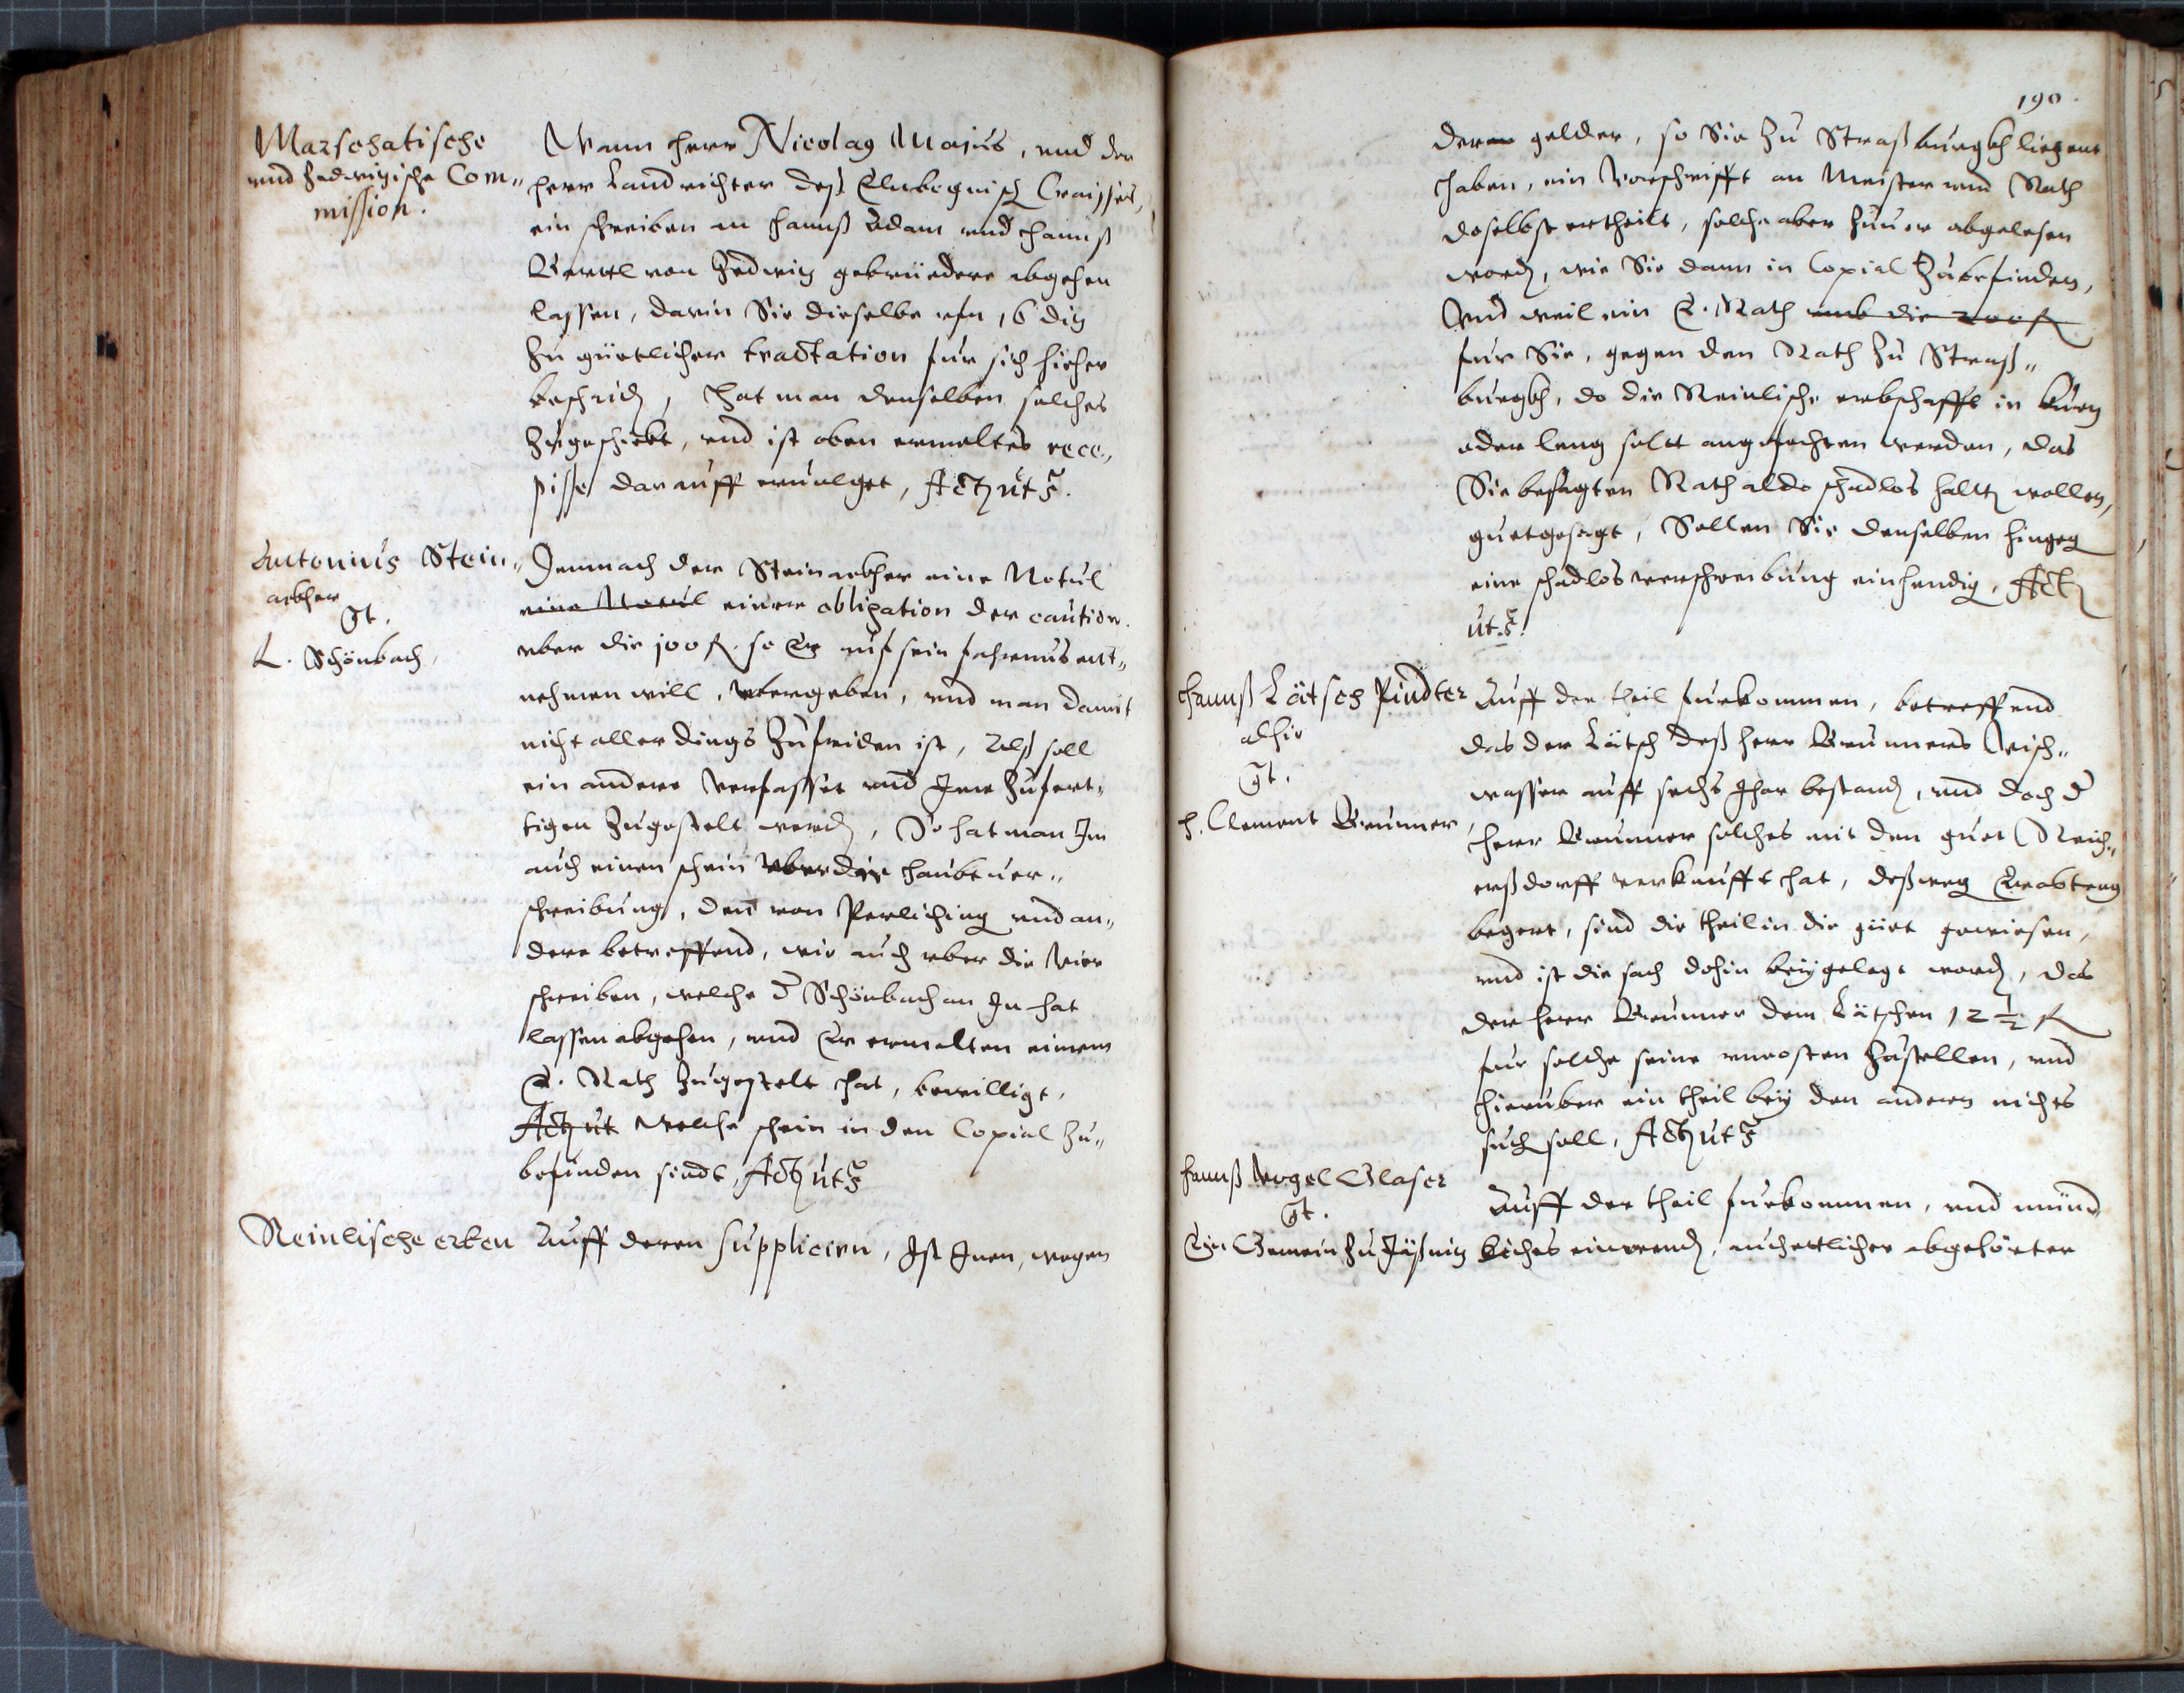 Marschatische
und Zedwizische Com„
mission.
Wann Herr Nicolaꝰ Maius, und der
Herr Landrichter deß Elnbognisch Craisses,
ein schreiben an Hannß Adam und Hannß
Bertl von Zedwitz gebrüedere abgehen
lassen, darin Sie dieselbe ufn 16 diß
zu güetlicher tractation fur sich hieher
beschiden, Hat man denselben solches
zugeschickt, und ist oben ermeltes rece„
pisse darauff ervolget, Actum ut s.
Antonius Stein„
acker
Ct.
L. Schönbach.
Demnach der Steinackher eine Notul
eine Notul einer obligation der caution
uber die 100 fl. so Er auf sein fahrnus auf„
nehmen will, ubergeben, und man damit
nicht aller dings zufriden ist, Alß soll
ein andere verfasset und Ime zufert„
tigen zugestelt werden, So hat man Im
auch einen schein uber die Haubtver„
schreibung, den von Perliching und an„
dere betreffend, wie auch uber die vier
schreiben, welche d Schönbach an In hat
lassen abgehen, und Er ermelten einem
E. Rath zugestelt hat, bewilligt,
Actum ut welche schein in den Copial zu„
befinden sindt, Actum ut s.
Reinlische erben
Auff deren suppliciren, Ist Inen, wegen
190.
deren gelder, so Sie zu Straßburgkh liegent
haben, ein Vorschrifft an Meister und Rath
doselbst ertheilt, solche aber zuvor abgelesen
worden, wie Sie dann in Copial zubefinden,
Und weil ein E. Rath umb die 200 fl
fur Sie, gegen den Rath zu Straß„
burgkh, do die Reinlische erbschafft in kurz
oder lang solt angefochten werden, das
Sie besagten Rath aldo schadlos halten wollen,
guetgesagt, Sollen Sie denselben hingegen
eine schadlosverschreibung einhendigen, Actum
ut s.
Hannß Lätsch Pindter
alhie
Ct.
H. Clement Brunner,
Auff der theil furkommen, betreffend
das der Lätsch deß Herr Brunners Visch„
wasser auff sechs Jhar bestanden, und doch d
Herr Brunner solches mit den guet Reich„
erßdorff verkaufft hat, deßwegen Er abtrag
begert, sind die theil in die güet gewiesen,
und ist die sach dohin beygelegt worden, das
der Herr Brunner dem Lätschen 12 ½ fl
fur solche seine uncosten zustellen, und
hieruber ein theil bey den andern nichts
suchen soll, Actum ut s.
Hannß Vogel Glaser
Ct.
Ein Gemein zu
Auff der theil furkommen, und mund
liches einwenden, auch ettlicher abgehörter